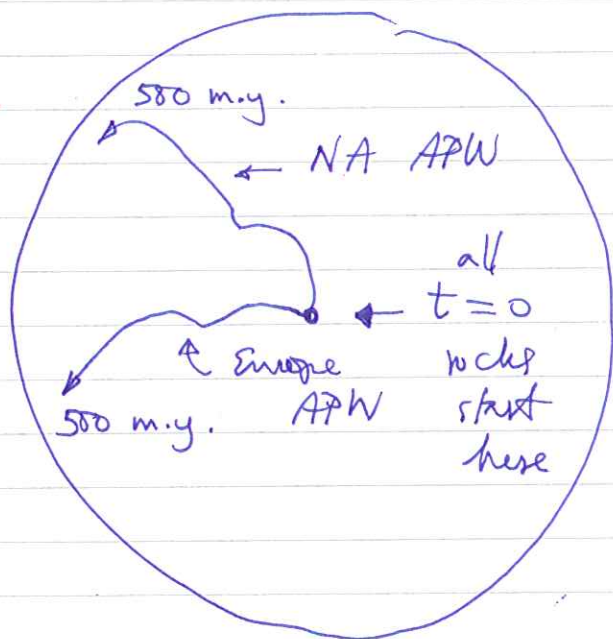 500 m.y.
← NA APW
all
← t = 0
rocks
start
here
↖ Europe
APW
500 m.y.